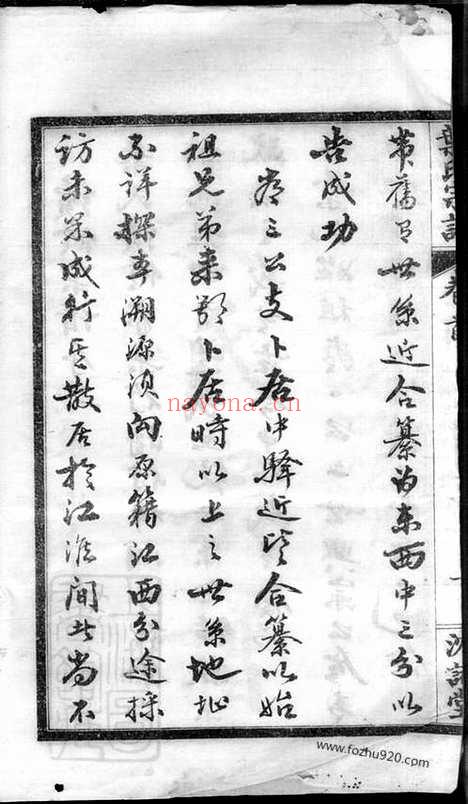 葉氏宗譜
卷首
黄舊百世系近合纂为東西中三分以
告成功
者三公支卜居中驛近皆合纂以始
祖兄弟来鄂卜居時以上之世系地址
不詳探本溯源須向原籍江西分途採
訪未果成行其散居於江淮間者尚不
nayona.cn
www.fozhu920.com